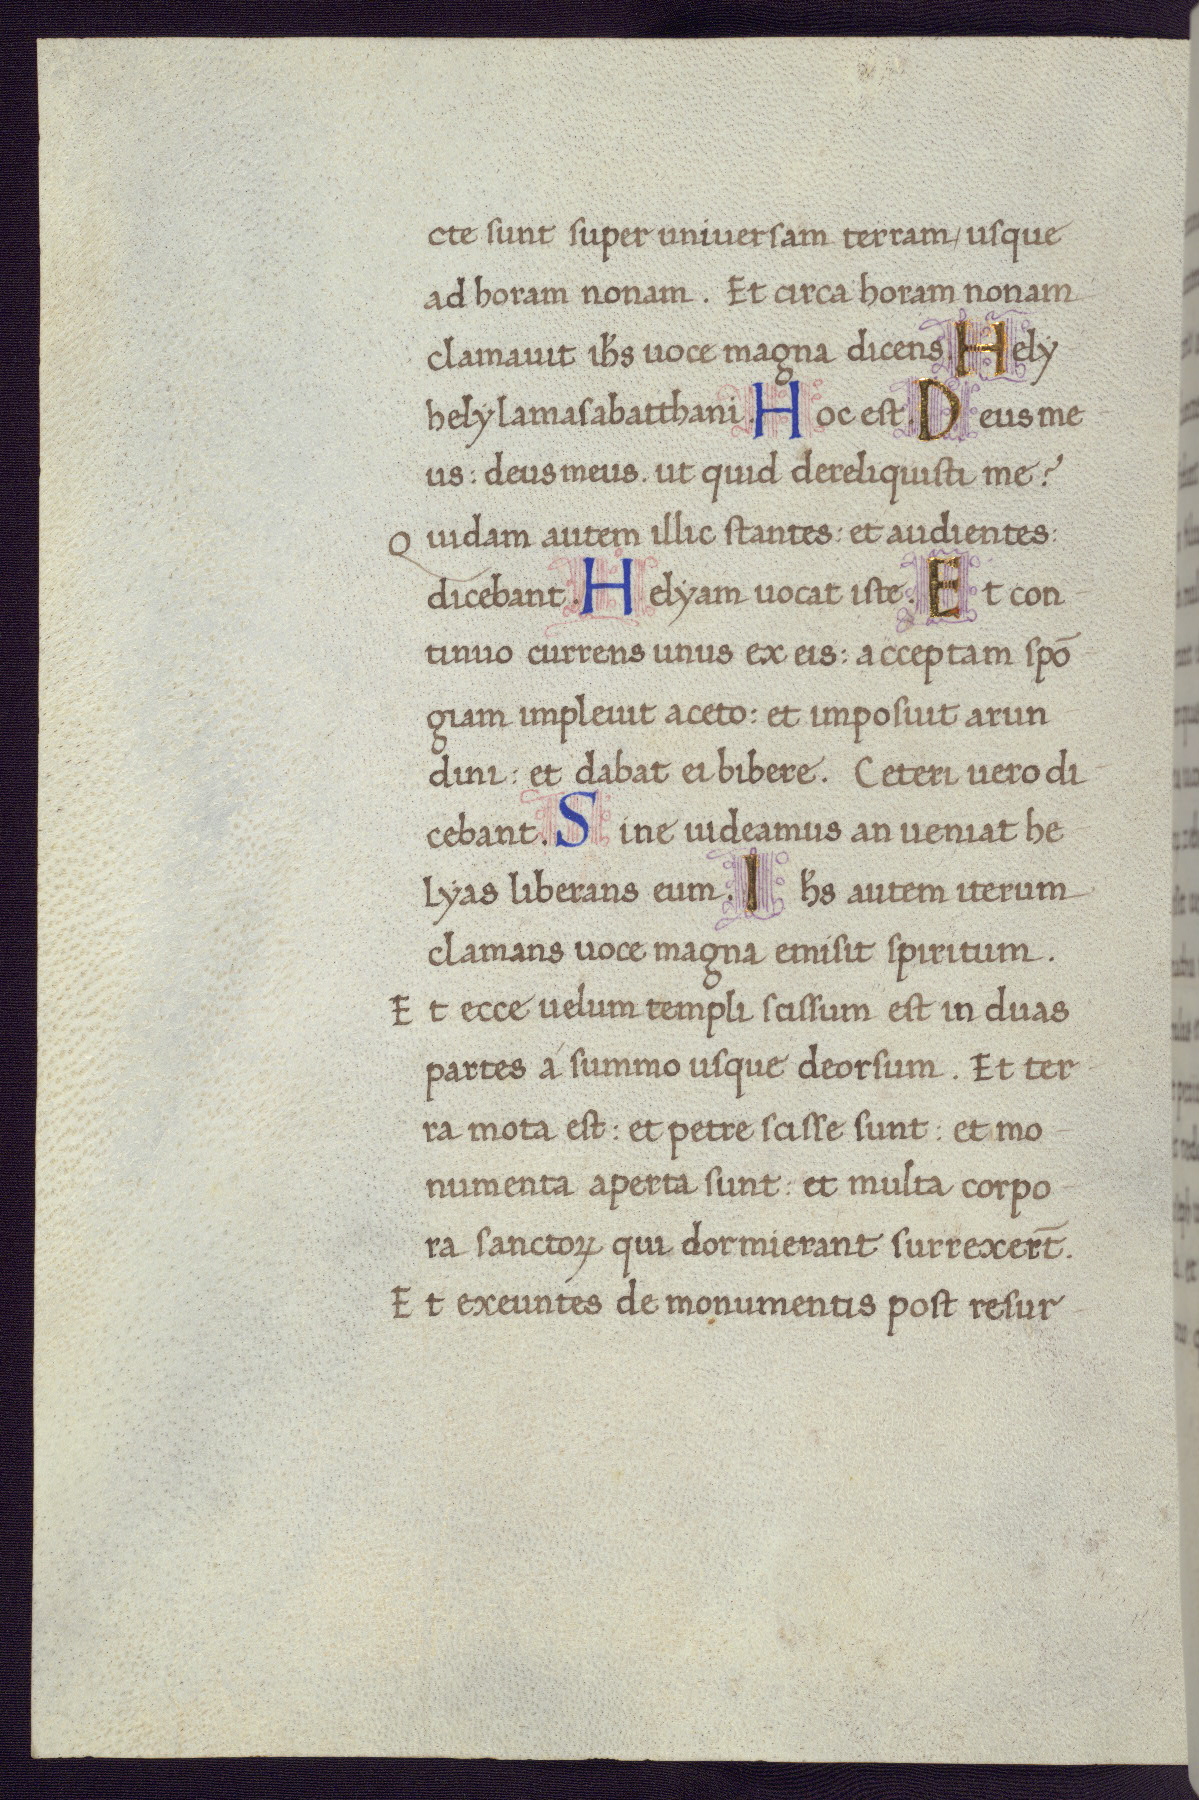 cte sunt super uniuersam terram/ usque
ad horam nonam. Et circa horam nonam
clamauit ihs uoce magna dicens. Hely
hely lamasabatthani. Hoc est. Deus me
us: deus meus. ut quid dereliquisti me?
Quidam autem illic stantes: et audientes:
dicebant. Helyam uocat iste. Et con
tinuo currens unus ex eis: acceptam spō
giam impleuit aceto: et imposuit arun
dini: et dabat ei bibere. Ceteri uero di
cebant. Sine uideamus an ueniat he
lyas liberans eum. Ihs autem iterum
clamans uoce magna emisit spiritum.
Et ecce uelum templi scissum est in duas
partes á summo usque deorsum. Et ter
ra mota est: et petre scisse sunt: et mo
numenta aperta sunt: et multa corpo
ra sanctoꝝ qui dormierant surrexert̄.
Et exeuntes de monumentis post resur